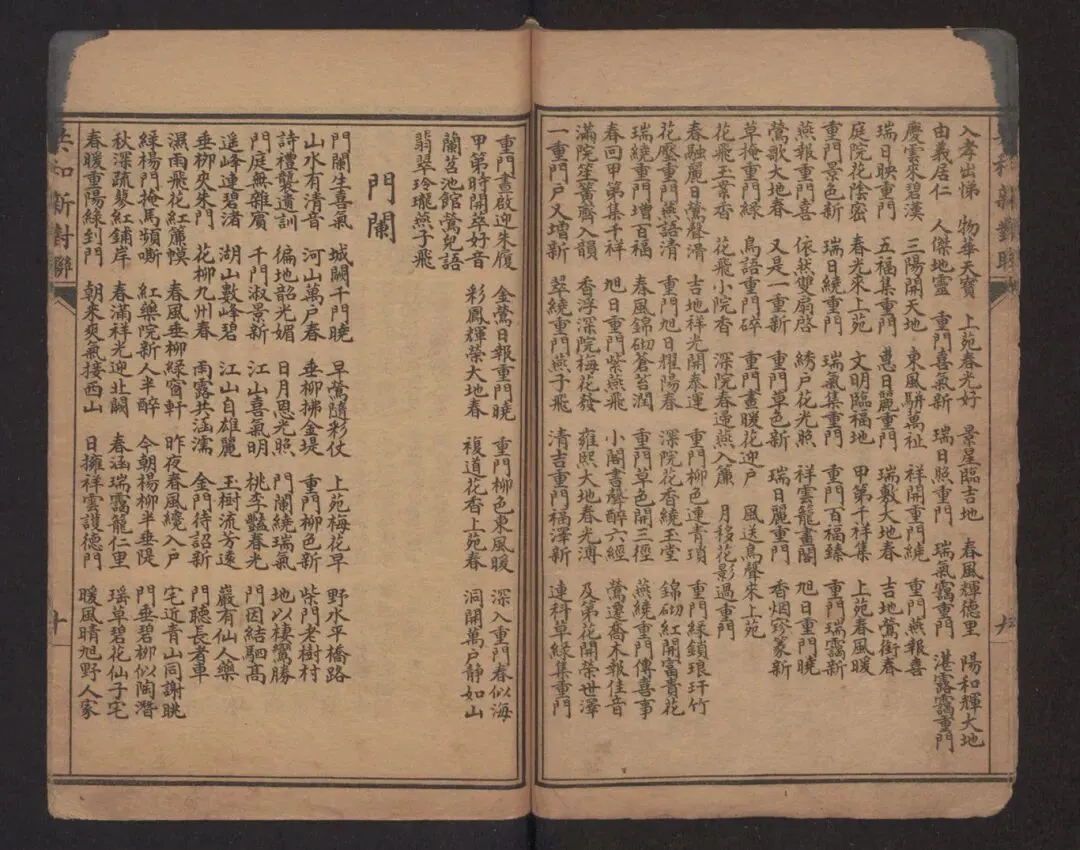 共和新對聯
九
入孝出悌 物華天寶 上苑春光好 景星臨吉地 春風輝德里 陽和輝大地
由義居仁 人傑地靈 重門喜氣新 瑞日照重門 瑞氣靄重門 湛露靄重門
慶雲來碧漢 三陽開天地 東風駢萬祉 祥開重門繞 重門燕報喜
瑞日映重門 五福集重門 蕙日麗重門 瑞敷大地春 吉地鶯銜春
庭院花陰密 春光來上苑 文明臨福地 甲第千祥集 上苑春風暖
重門景色新 瑞日繞重門 瑞氣集重門 重門百福臻 重門瑞靄新
燕報重門喜 依然雙扇啓 綉戶花光照 祥雲籠畫閣 旭日重門曉
鶯歌大地春 又是一重新 重門草色新 瑞日麗重門 香烟篆新
草掩重門 鳥語重門碎 重門晝暖花迎戶 風送鳥聲來上苑
花飛玉香 花飛小院香 深院春過燕入簾 月移花影過重門
春融麗日鶯聲滑 吉地祥光開泰運 重門柳色連青瑣 重門綠鎖琅玕竹
花壓重門燕語清 重門旭日耀陽春 深院花香繞玉堂 錦砌紅開富貴花
瑞繞重門增百福 春風錦砌蒼苔潤 重門草色開三徑 燕繞重門傳喜事
春回甲第集千祥 旭日重門紫燕飛 小閣書聲醉六經 鶯遷喬木報佳音
滿院笙簧齊入韻 香浮深院梅花發 雍熙大地春光溥 及第花開榮世澤
一重門戶又增新 翠繞重門燕子飛 清吉重門福澤新 連科草綠集重門
重門晝啟迎朱履 金鶯日報重門曉 重門柳色東風暖 深入重門春似海
甲第時開萃好音 彩鳳輝榮大地春 複道花香上苑春 洞開萬戶静如山
蘭苕池館鶯兒語
翡翠玲瓏燕子飛
門闌
門闌生喜氣 城闕千門曉 早鶯隨彩仗 上苑梅花早 野水平橋路
山水有清音 河山萬戶春 垂柳拂金堤 重門柳色新 柴門老樹村
詩禮襲遺訓 徧地韶光媚 日月恩光照 門闌繞瑞氣 地以棲鸞勝
門庭無雜賓 千門淑景新 江山喜氣明 桃李豔春光 門因結駟高
遥峰連碧渚 湖山數峰碧 江山自雄麗 玉樹流芳遠 巖有仙人樂
垂柳夾朱門 花柳九州春 雨露共涵濡 金門待詔新 門聽長者車
濕雨飛花紅簾幙 春風垂柳綠窗軒 昨夜春風纔入戶 宅近青山同謝眺
綠楊門掩馬頻嘶 紅藥院新人半醉 今朝楊柳半垂隄 門垂碧柳似陶潛
秋深疏蓼紅鋪岸 春滿祥光迎北闕 春涵瑞靄籠仁里 瑶草碧花仙子宅
春暖重陽綠到門 朝來爽氣接西山 日擁祥雲護德門 暖風晴旭野人家
共和新對聯
十